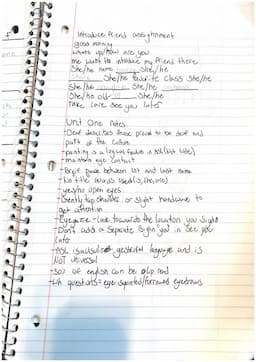 Introduce friend assignment
good morning
whats up/how are you
me want to introduce my friend there
She/he name She/he
She/he favorite class She/he
She/he She/he
She/he She/he
Take care see you later
Unit One notes
- Deaf describes those proud to be deaf and
part of the culture
- pointing is a logical feature in ASL (not rude)
- maintain eye contact
- Brief pause between 1st and last name
- No title words used (is, the, are)
- yes/no open eyes
- Gently tap shoulder or slight handwave to
get attention
- Eyegaze - Look towards the location you sight
- Don't add a separate sign you in see you
later
- ASL is visual gestural language and is
NOT universal
- 30% of english can be lip read
- wh questions = eye squinted/furrowed eyebrows